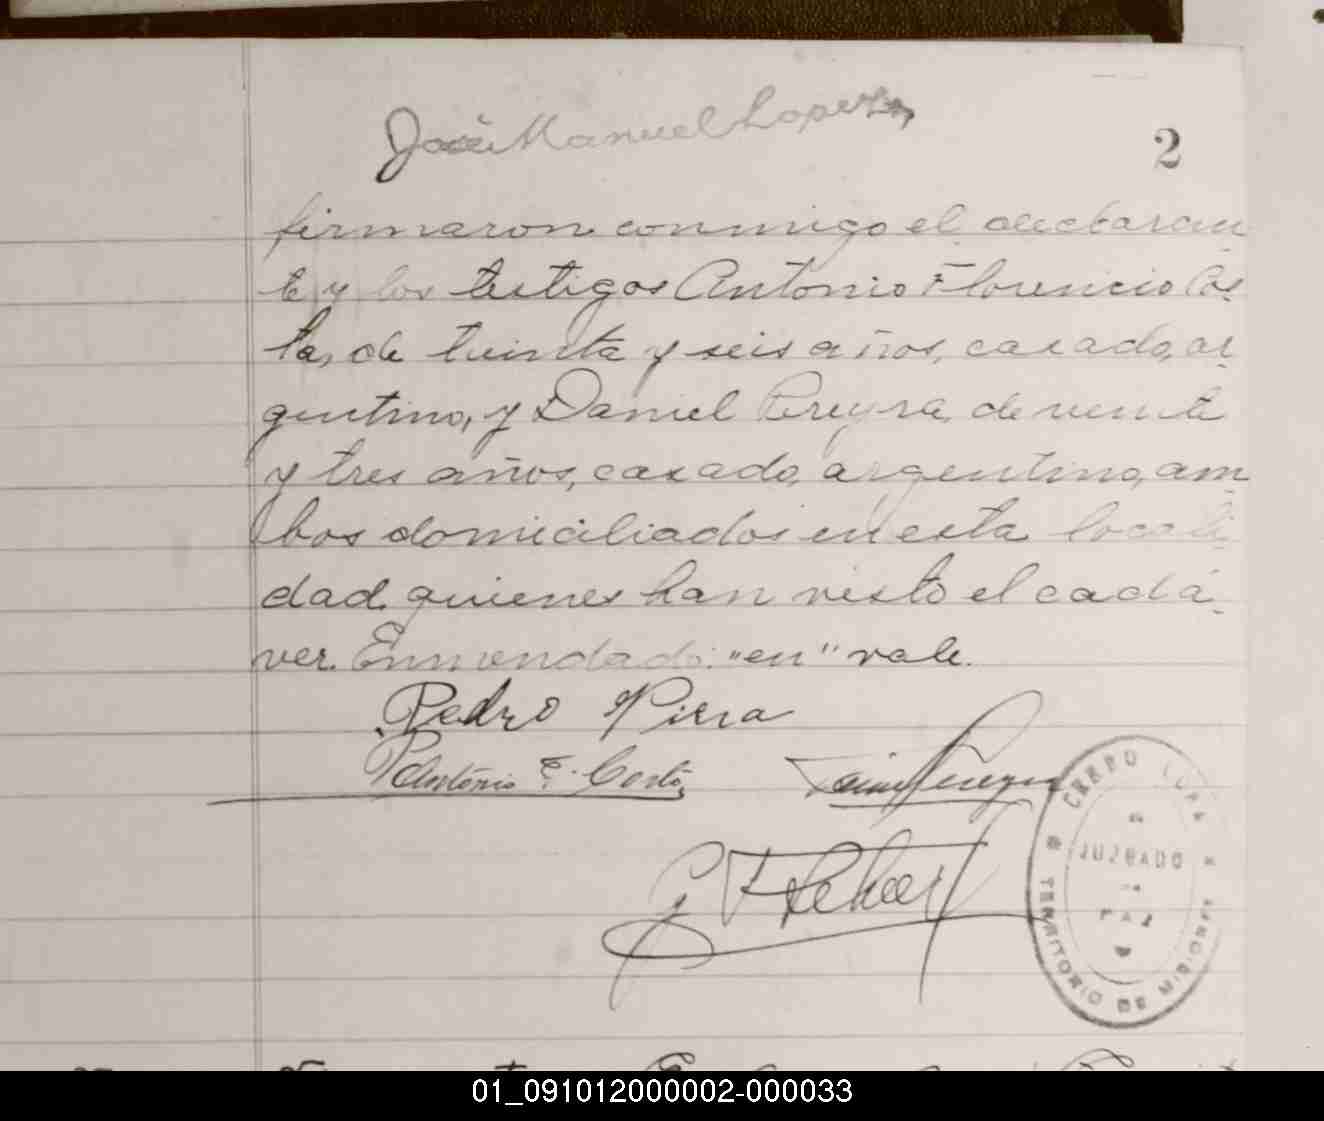 José Manuel Lopez
2
firmaron conmigo el declaran
te y los testigos Antonio Florencio Cos-
ta, de treinta y seis años, casado, ar-
gentino, y Daniel Pereyra, de veinte
y tres años, casado, argentino, am
bos domiciliados en esta locali-
dad, quienes han visto el cadá-
ver. Enmendado: "en" vale.
Pedro Piera
Antonio F. Costa
CERRO CORA
JUZGADO
DE
PAZ
TERRITORIO DE MISIONES
01_091012000002-000033